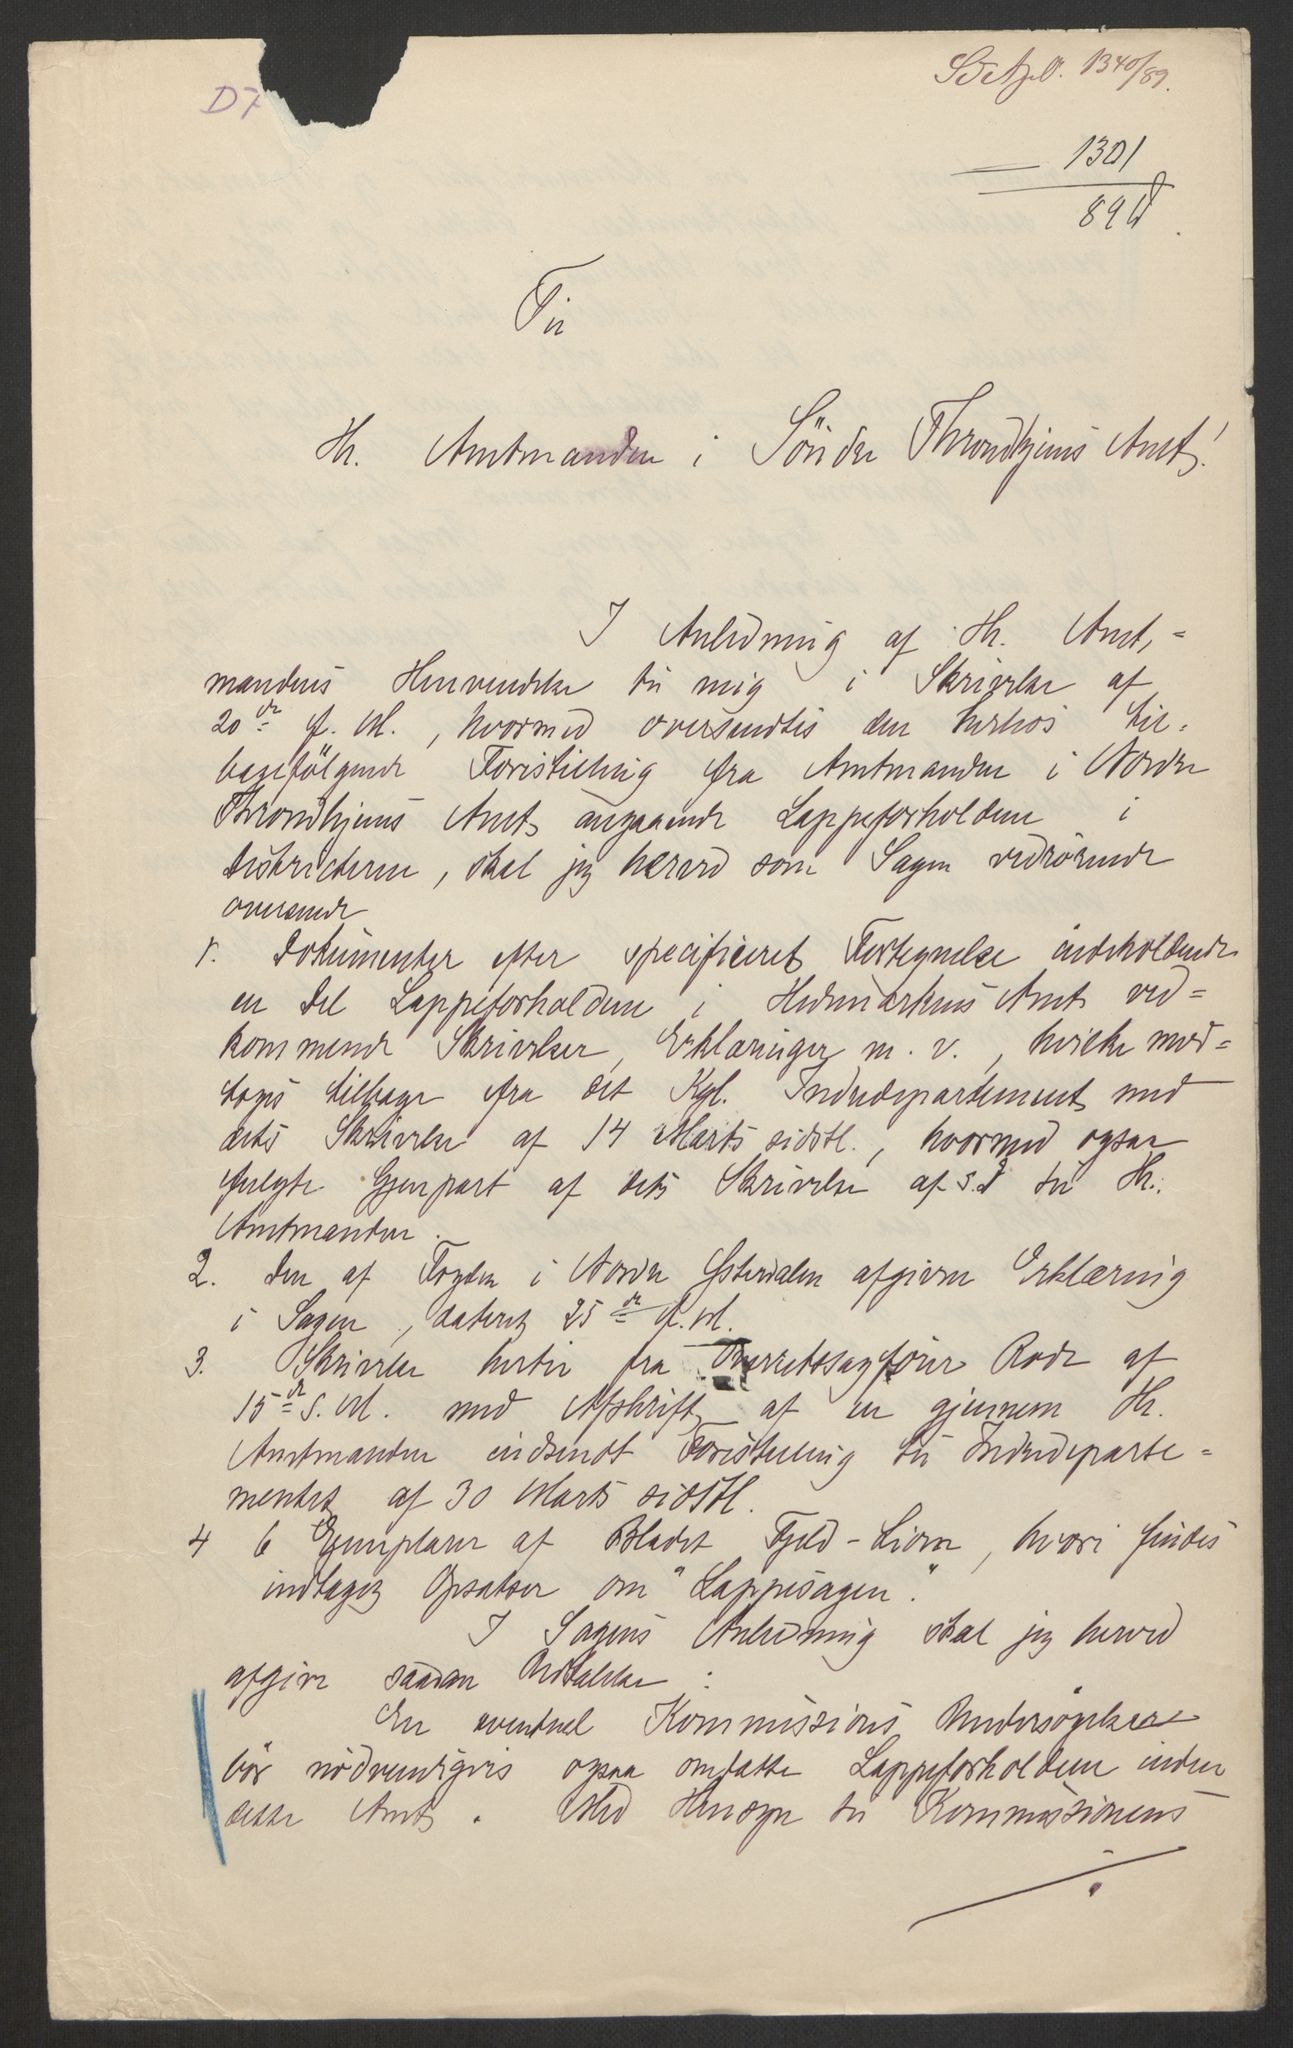 D7
1340/89.
1301
89
Til
Hr. Amtmanden i Söndre Throndhjems Amt!
I Anledning af Hr. Amt-
mandens Henvendelse til mig i Skrivelse af
20de f. M., hvormed oversendtes den herhos til-
bagefölgende Forestilling fra Amtmanden i Nordre
Throndhjems Amt angaaende Lappeforholdene i
Districterne, skal jeg herved som Sagen vedrörende
oversende
1. Dokumenter efter specificeret Fortegnelse indeholdende
en Del Lappeforholdene i Hedemarkens Amt ved-
kommende Skrivelser, Erklæringer m. v., hvilke mod-
toges tilbage fra det Kgl. Indredepartement med
dets Skrivelse af 14 Marts sidstl., hvormed ogsaa
fulgte Gjenpart af dets Skrivelse af s. D til Hr.
Amtmanden.
2. Den af Fogden i Nordre Österdalen afgivne Erklæring
i Sagen, dateret 25de f. M.
3. Skrivelse hertil fra Overretssagförer Rode af
15de s. M. med Afskrift af en gjennem Hr.
Amtmanden indsendt Forestilling til Indredeparte-
mentet af 30 Marts sidstl.
4 6 Exemplarer af Bladet Fjeld-Ljom, hvori findes
indtaget Opsatser om "Lappesagen".
I Sagens Anledning skal jeg herved
afgive saadan Udtalelse:
En eventuel Kommissions Undersögelser
bör nödvendigvis ogsaa omfatte Lappeforholdene inden
dette Amt. Med Hensyn til Kommissionens